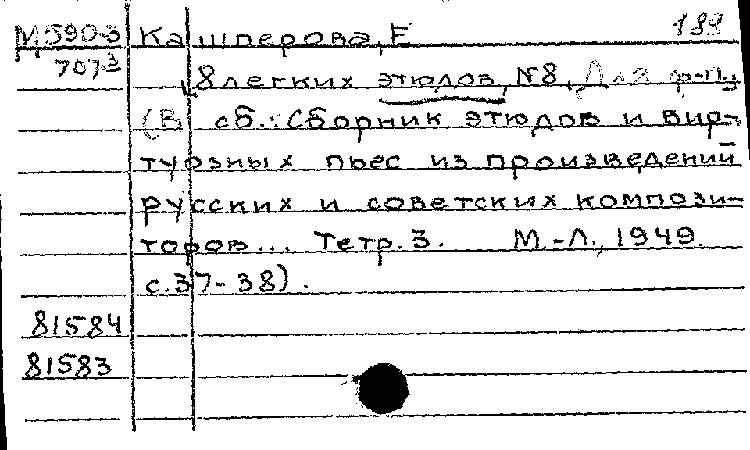 М590-3 Кашперова, Е 188
7073
8 легких этюдов, №8, Для ф-п.,
(В сб.: Сборник этюдов и вир-
туозных пьес из произведений
русских и советских компози-
торов... Тетр. 3. М-Л., 1949.
с.37-38).
81584
81583